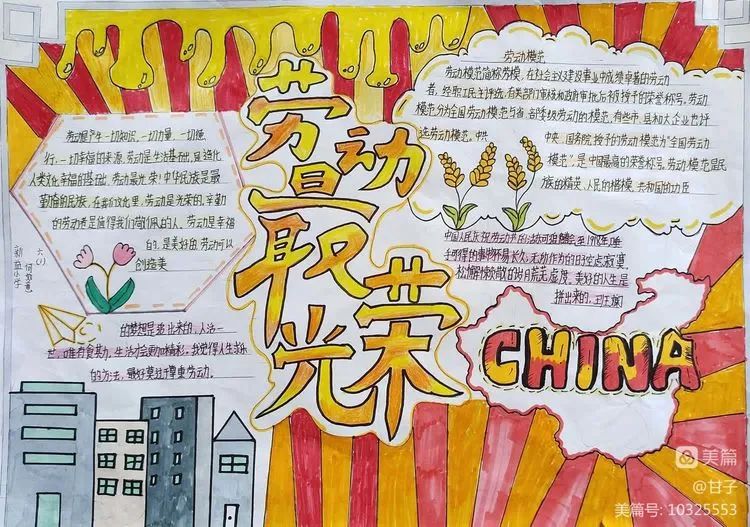 劳动
最
光荣
劳动是产生一切知识、一切力量、一切德
行、一切幸福的来源。劳动是生活基础,且造化
人类文化幸福的基础。劳动最光荣!中华民族是最
勤奋的民族,在我们这里,劳动是光荣的,辛勤
的劳动者是值得我们敬佩的人。劳动是幸福
的,是美好的,劳动可以
创造美
六(1)
新蓝小学
的梦想是
出来的,人活一
世,唯有食其力,生活才会更加精彩,我觉得人生
的方法,最好莫过于尊重劳动。
劳动模范
劳动模范简称劳模,在社会主义建设事业中成绩卓著的劳动
者,经职工民主评选,有关部门审核和政府审批后被授予的荣誉称号。劳动
模范分为全国劳动模范与省、部委级劳动的模范,有些市、县和大企业也评
选劳动模范。中共
中央、国务院授予的劳动模范为“全国劳动
模范”是中国最高的荣誉称号,劳动模范是民
族的精英、人民的楷模、共和国的功臣
中国人民庆祝劳动节的活动可追溯至1918年。唯
松懈惰散的岁月荒芜虚度。美好的人生是
拼出来的。
CHINA
美篇
@甘子
美篇号: 10325553